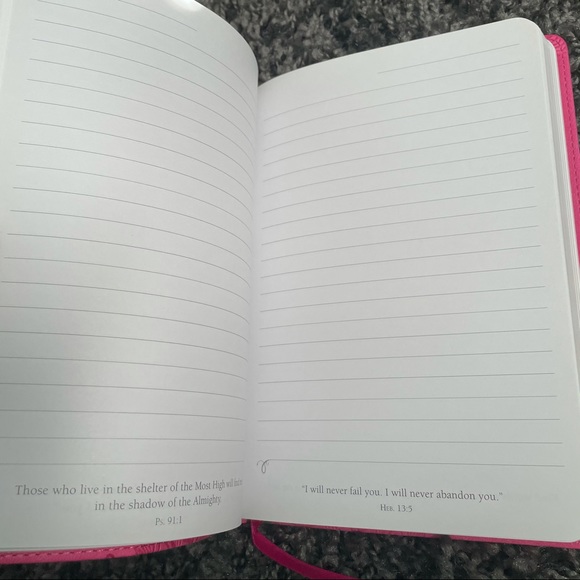 Those who live in the shelter of the Most High will
in the shadow of the Almighty.
Ps. 91:1
"I will never fail you. I will never abandon you."
Heb. 13:5